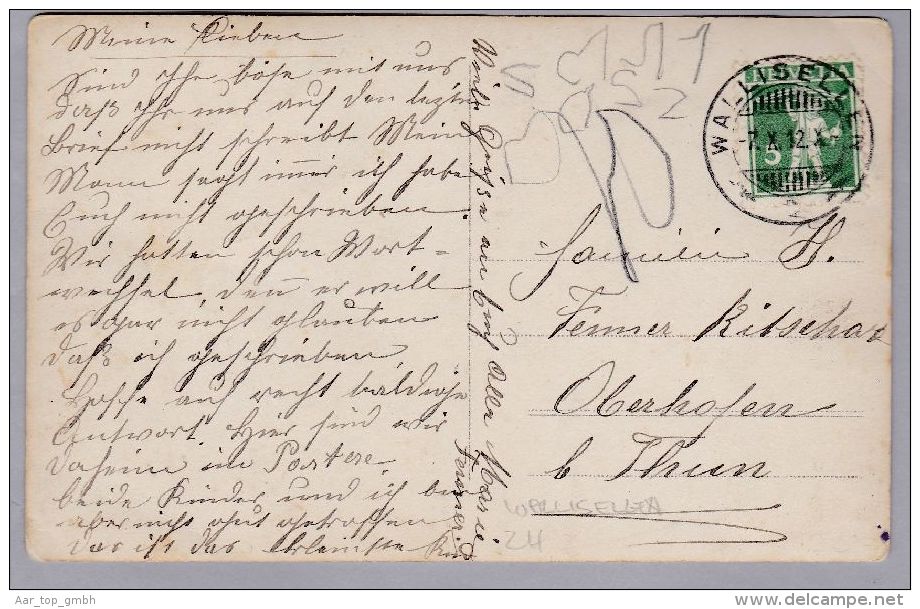 Meine Lieben
Sind Ihr böse mit uns
daß ihr uns auf den lezten
Brief nicht schreibt Mein
Mann sagt immer ich habe
Euch nicht geschrieben
Wir hatten schon Wort-
wechsel denn er will
es gar nicht glauben
daß ich geschrieben
Hoffe auf recht baldige
Antwort. Hier sind wir
daheim im Partere
beide Kinder und ich bin
aber nicht gut getroffen
das ist das
Viele Grüße an Euch alle Marie
Fenner
HELVETIA
5
WALLISELLEN
-7.X.12.X
Familie H.
Fenner
Oberhofen
b Thun
WALLISELLEN
ZH
Aar_top_gmbh
www.delcampe.net